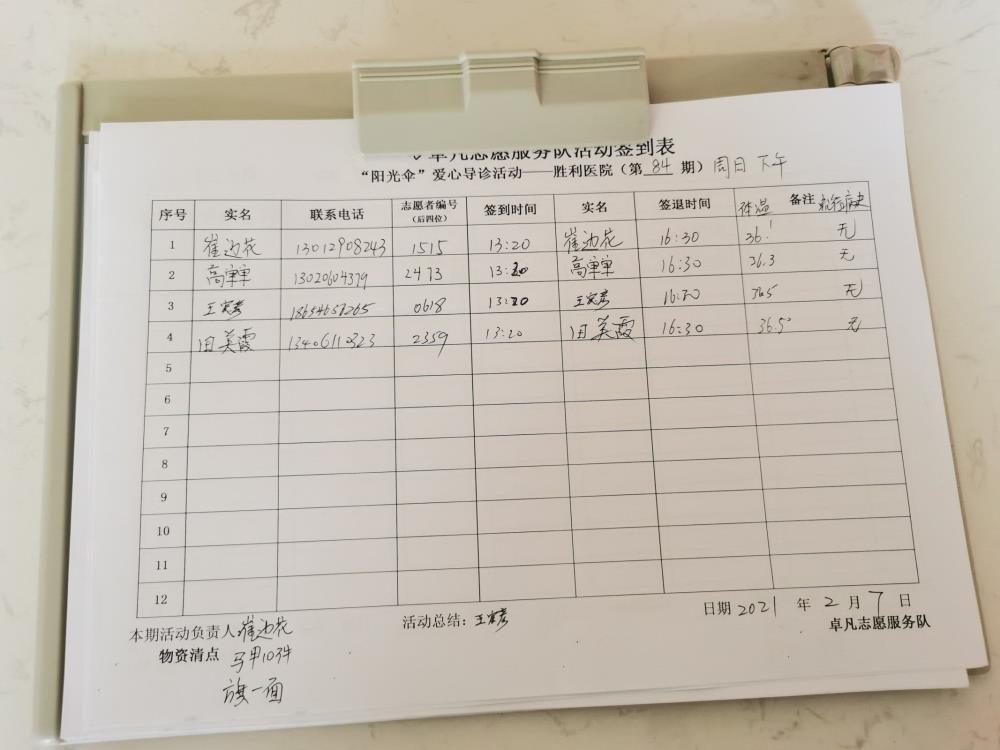 卓凡志愿服务队活动签到表
“阳光伞”爱心导诊活动——胜利医院（第 84 期）周日下午
序号 实名 联系电话 志愿者编号（后四位） 签到时间 实名 签退时间 体温 备注
1 崔边花 13012908243 1515 13:20 崔边花 16:30 36.1 无
2 高单单 13020604379 2473 13:20 高单单 16:30 36.3 无
3 18654651265 0618 13:20 16:30 36.5 无
4 田美霞 13406110323 2359 13:20 田美霞 16:30 36.5° 无
5
6
7
8
9
10
11
12
本期活动负责人 崔边花 活动总结： 日期 2021 年 2 月 7 日
物资清点 马甲103件 卓凡志愿服务队
旗一面